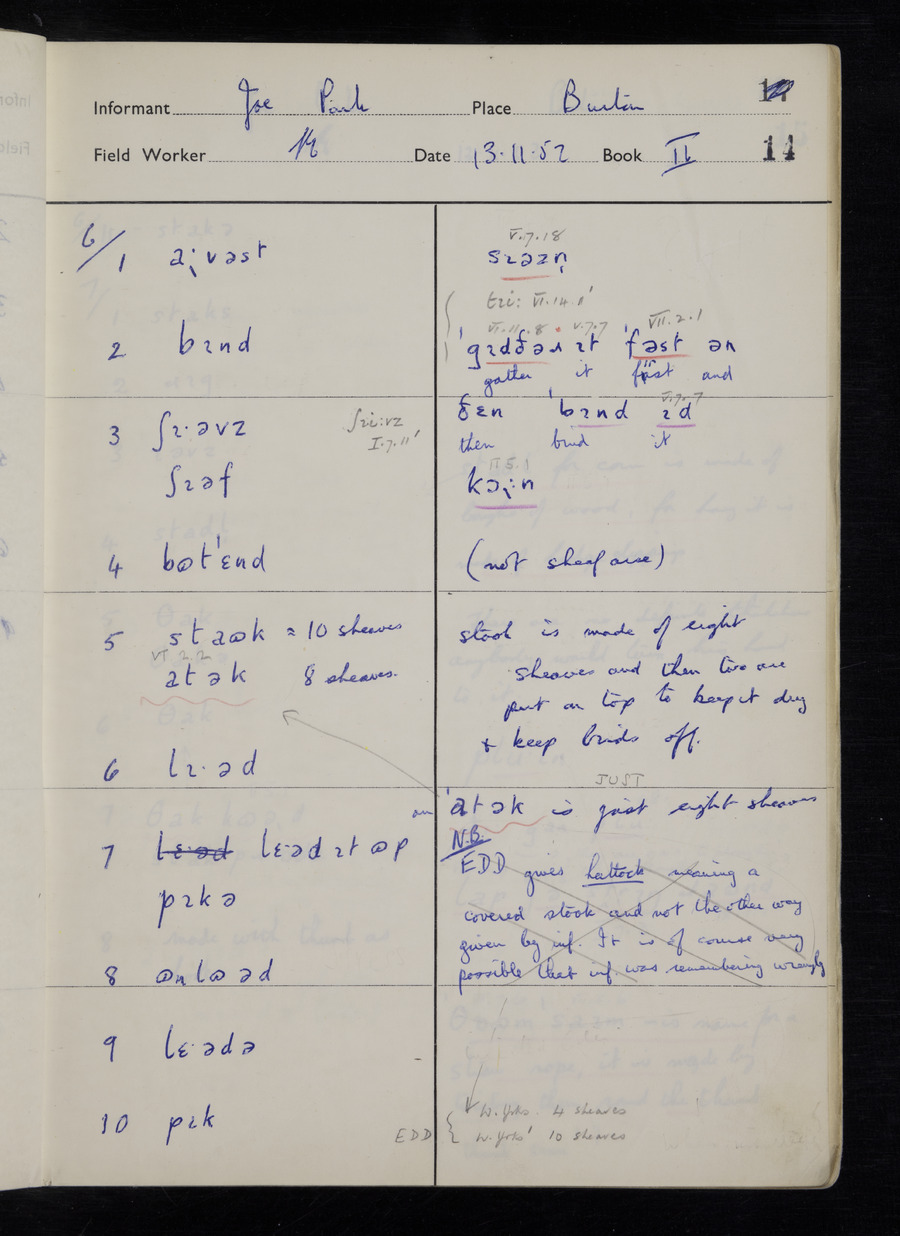 Informant Joe Park Place Burton
Field Worker Date 13.11.52 Book II 14
6/
1 aɪ̨vəst
2 bɪnd
3 ʃɪ·əvz ʃɪi:vz
I.7.11'
ʃɪəf
4 bɵt'ɛnd
5 staɵk = 10 sheaves
VI 2.2
atək 8 sheaves.
6 lɪ·əd
7 lɛ·əd lɛ·əd ɪt ɵp
pɪkə
8 ɵnlɵəd
9 lɛ·ədə
10 pɪk
V.7.18
sɪəzn̩
tɹi: VI.14.11'
VI.11.8 V.7.7 VII.2.1
'gɪdðəɹ ɪt 'fəst ən
gather it fast and
V.7.7
ðɛn 'bɪnd ɪd
then bind it
II 5.1
kəɪ̨:n
(not sheaf arse)
stook is made of eight
sheaves and then two are
put on top to keep it dry
+ keep birds off.
JUST
an 'atək is just eight sheaves
N.B.
EDD gives hattock meaning a
covered stook and not the other way
given by inf. It is of course very
possible that inf. was remembering wrongly
W. Yrks. 4 sheaves
EDD W. Yrks' 10 sheaves